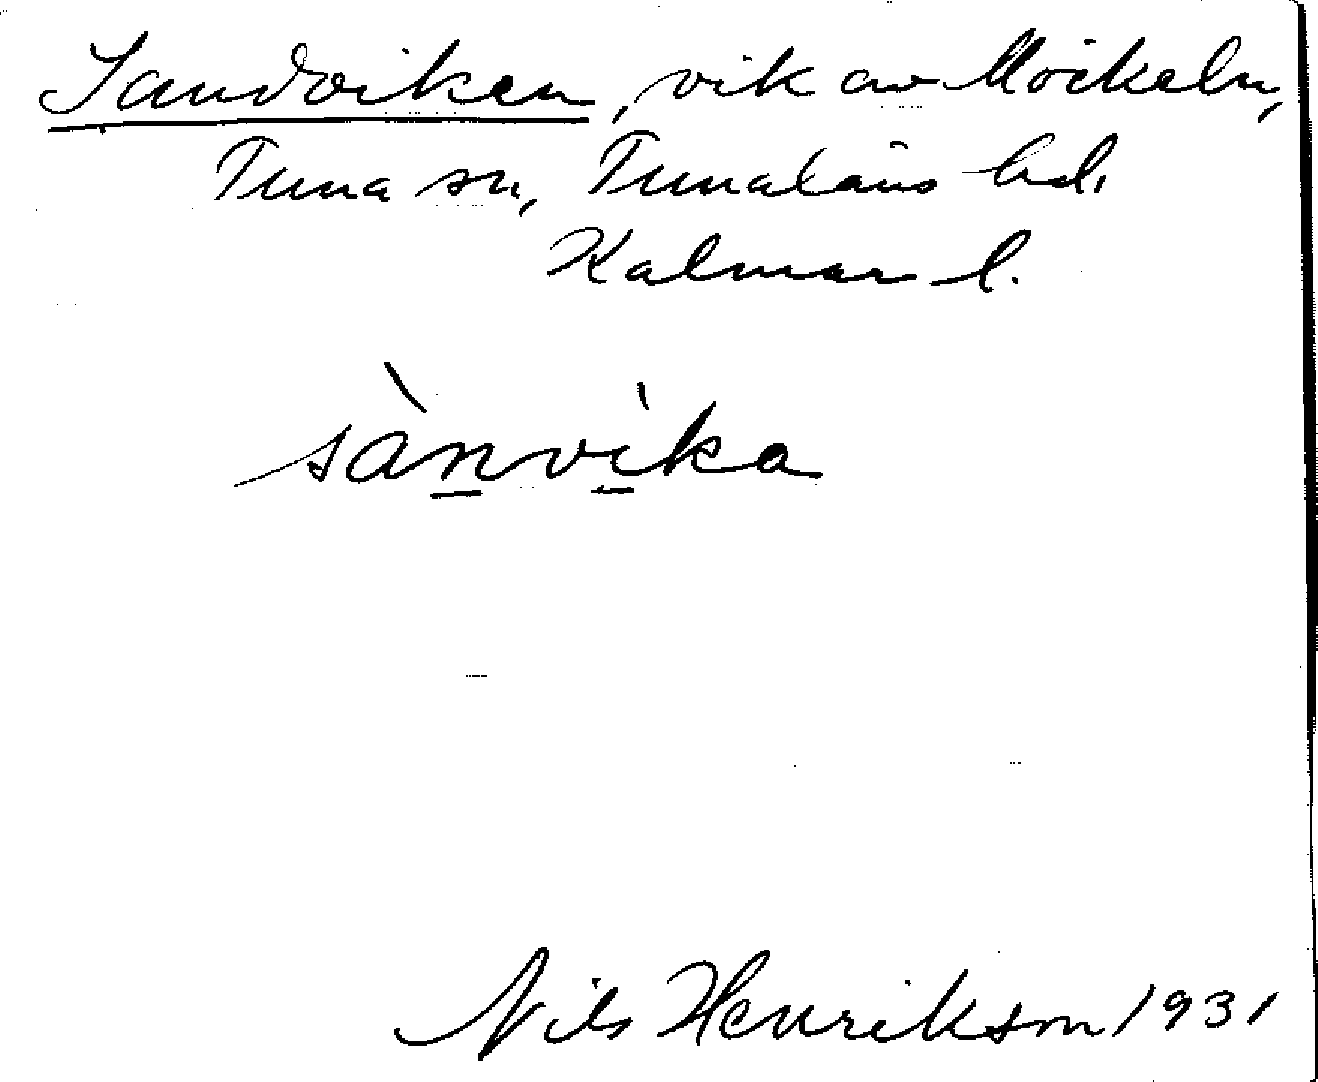 Sandviken, vik av Möckeln,
Tuna sn, Tunaläns hd.
Kalmar l.
sànvìka
Nils Henrikson 1931